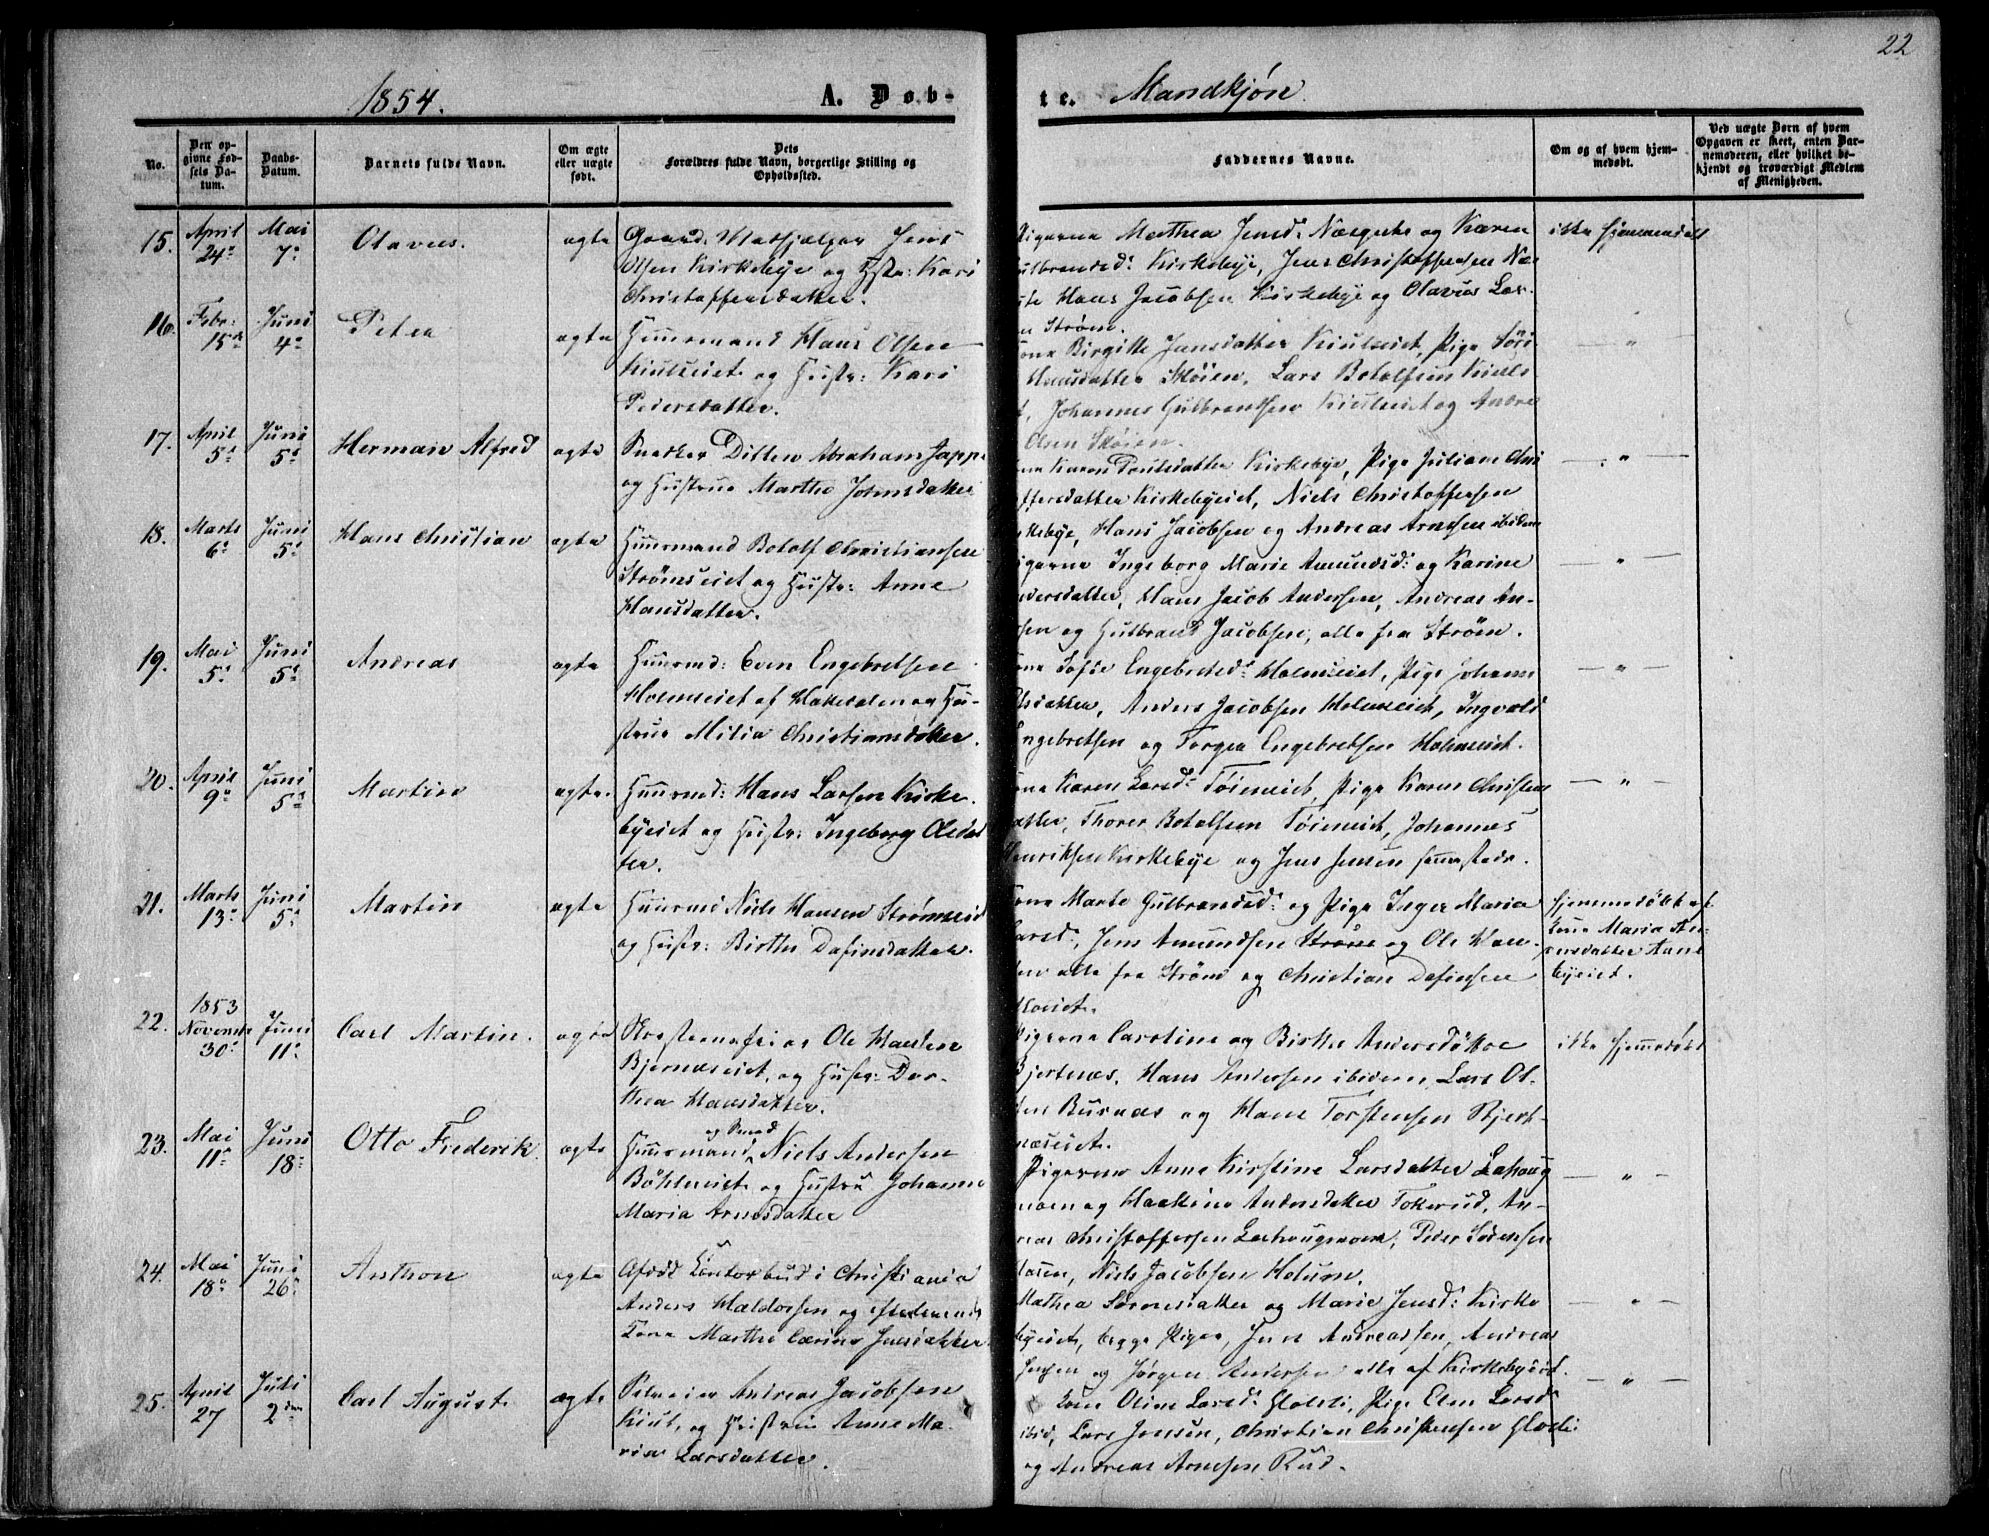 22
1854. A. Døb-
te. Mandkjøn.
No. Den opgivne Fødsels Datum. Daabs-Datum. Barnets fulde Navn. Om ægte eller uægte født. Dets Forældres fulde Navn, borgerlige Stilling og Opholdssted.
Faddernes Navne. Om og af hvem hjemmedøbt. Ved uægte Børn af hvem Opgaven er skeet, enten Barnemoderen, eller hvilket bekjendt og troværdigt Medlem af Menigheden.
15. April 24de Mai 7de Olavus. ægte
Olsen Kirkebye og Hstr: Kari
Christoffersdatter.
Pigerne Marthea Jensd: og Karen
Gulbrandsd: Kirkebye, Jens Christoffersen
Hans Jacobsen Kirkebye og Olavus Lar-
Strøm.
ikke hjemmedøbt
16. Febr: 15de Juni 4de Peter ægte
Huusmand Hans Olsen
Kiulseiet og Hustr: Kari
Pedersdatter.
Kona Birgitte Jensdatter Kiulseiet, Pige
Hansdatter Skøien, Lars Botolfsen Kiuls
Johannes Gulbrandsen Kiulseiet og Andre
Olsen Skøien.
— " —
17. April 5te Juni 5te Herman Alfred ægte
Snedker Ditlew Abraham Jappe
og Hustrue Marthe Johnsdatter
Karen Poulsdatter Kirkebye, Pige Juliane Chri
stoffersdatter Kirkebyeiet, Niels Christoffersen
Kirkebye, Hans Jacobsen og Andreas Arnesen ibidem
— " —
18. Marts 6te Juni 5te Hans Christian ægte
Huusmand Botolf Christiansen
Strømseiet og Hustr: Anne
Hansdatter.
Pigerne Ingeborg Marie Amundsd: og Karine
Andersdatter, Hans Jacob Andersen, Andreas An-
sen og Gulbrand Jacobsen, alle fra Strøm.
— " —
19. Mai 5te Juni 5te Andreas ægte
Huusmd: Even Engebretsen
Holmseiet af Hakedalen og Hu-
strue Milia Christiansdatter.
Kona Sofie Engebretsd: Holmseiet, Pige Johanne
datter, Anders Jacobsen Holmseiet, Ingvald
Engebretsen og Torger Engebretsen Holmseiet.
— " —
20. April 9de Juni 5te Martin ægte.
Huusmd: Hans Larsen Kirke-
byeiet og Hustr: Ingeborg Olsdat
ter.
Kona Karen Larsd: Tøieneiet, Pige Karen Christens
datter, Thorer Botolfsen Tøieneiet, Johannes
Henriksen Kirkebye og Jens Jensen sammesteds.
— " —
21. Marts 13de Juni 5te Martin ægte
Huusmd Niels Hansen Strømseiet
og Hustr: Birthe Dafinsdatter.
Kona Marte Gulbrandsd: og Pige Inger Maria
Larsd:, Jens Amundsen Strøm og Ole Han-
sen alle fra Strøm og Christian Dafinsen
hjemmedøbt af
Kone Maria An-
dersdatter Aane
byeiet.
22. 1853 Novembr 30te Juni 11te Carl Martin. ægte
Ole Hansen
Bjertnæseiet, og Hustr: Dor-
thea Hansdatter.
Pigerne Caroline og Birthe Andersdøttre
Bjertnæs, Hans Andersen ibidem, Lars Ol-
sen Burnæs og Hans Torstensen Bjert-
næseiet.
ikke hjemmedøbt
23. Mai 11te Juni 18de Otto Frederik. ægte
Huusmand og Smed Niels Andersen
Bøhlereiet og Hustru Johanne
Maria Arnesdatter
Pigerne Anne Kirstine Larsdatter Lahaug
moen og Haakine Andersdatter Tokerud, An-
dreas Christoffersen Lahaugmoen, Peder Sørensen
Niels Jacobsen Holum.
— " —
24. Mai 18de Juni 26de Anthon ægte
Afdød Contorbud i Christiania
Anders Haldorsen og efterlevende
Kone Marthe Karine Jensdatter
Mathea Sørensdatter og Marie Jensd: Kirke
byeiet, begge Piger, Jens Andreassen, Andreas
Jensen og Jørgen Andersen alle af Kirkebyeiet.
— " —
25. April 27 Juli 2den Carl August. ægte
Pelmeier Andreas Jacobsen
Kiul, og Hustrue Anne Ma-
ria Larsdatter.
Kone Oline Larsd: Pige Elen Larsd:
ibid, Lars Jensen, Christian Christensen
og Andreas Arnesen Rud.
— " —